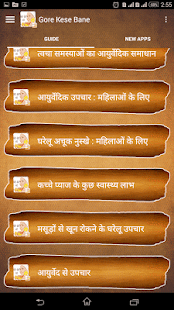 2:55
Gore Kese Bane
GUIDE NEW APPS
त्वचा समस्याओं का आयुर्वेदिक समाधान
आयुर्वेदिक उपचार : महिलाओं के लिए
घरेलू अचूक नुस्खे : महिलाओं के लिए
कच्चे प्याज के कुछ स्वास्थ्य लाभ
मसूड़ों से खून रोकने के घरेलू उपचार
आयुर्वेद से उपचार